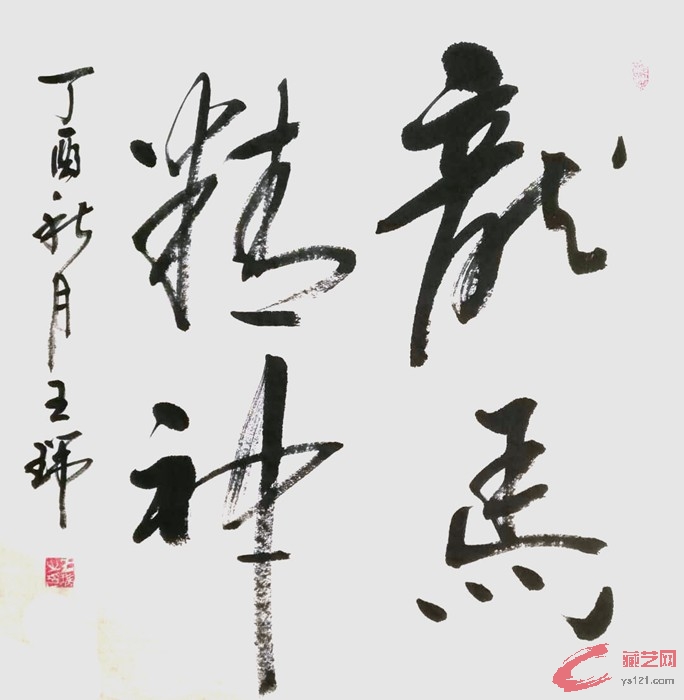 龍馬
精神
丁酉秋月王瑞
藏艺网
ys121.com